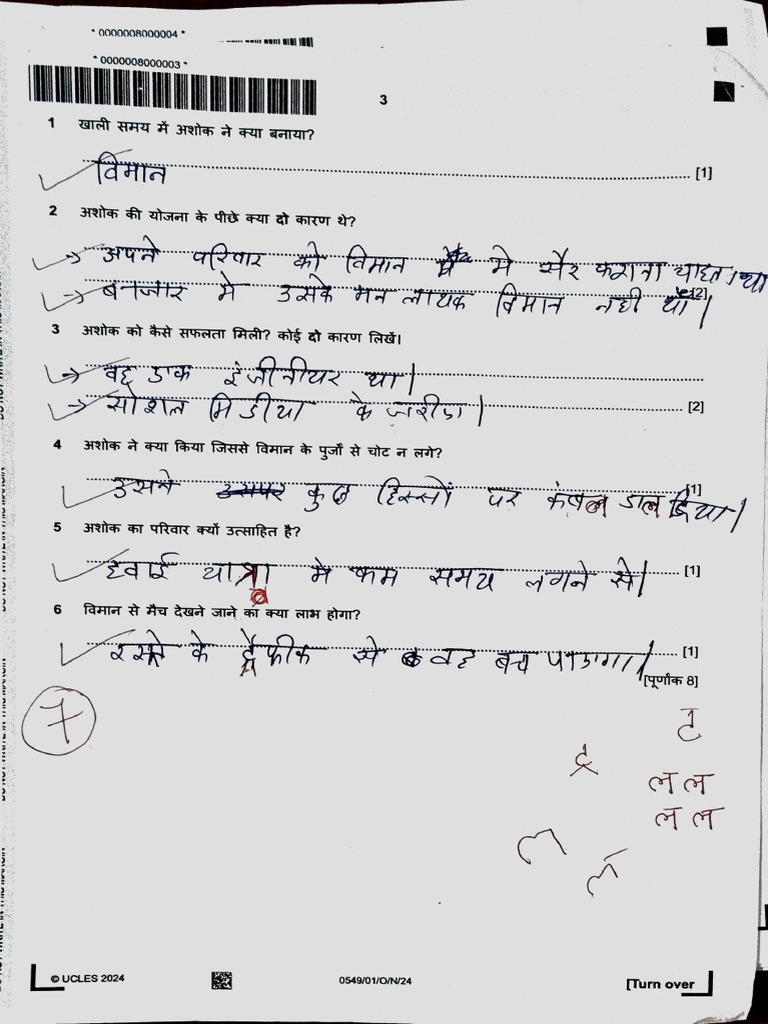 * 0000008000004 *
* 0000008000003 *
3
1 खाली समय में अशोक ने क्या बनाया?
विमान [1]
2 अशोक की योजना के पीछे क्या दो कारण थे?
→ अपने परिवार को विमान मे सैर कराना चाहता था
→ बाजार मे उसके मन लायक विमान नही था। [2]
3 अशोक को कैसे सफलता मिली? कोई दो कारण लिखें।
→ वह एक इंजीनीयर था।
→ सोशल मिडीया के जरीए। [2]
4 अशोक ने क्या किया जिससे विमान के पुर्जों से चोट न लगे?
उसने कुछ हिस्सों पर कंबल डाल दिया। [1]
5 अशोक का परिवार क्यों उत्साहित है?
हवाई यात्रा मे कम समय लगने से। [1]
6 विमान से मैच देखने जाने का क्या लाभ होगा?
रस्ते के ट्रैफीक से वह बच पाएगा। [1]
[पूर्णांक 8]
7
ट
ल ल
ल ल
ल
© UCLES 2024
0549/01/O/N/24
[Turn over